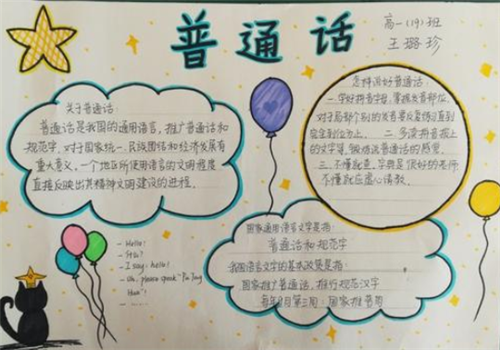 普通话
高一(19)班
王璐珍
关于普通话:
普通话是我国的通用语言,推广普通话和
规范字,对于国家统一,民族团结和经济发展有
重大意义,一个地区所使用语言的文明程度
直接反映出其精神文明建设的进程。
怎样说好普通话:
一.学好拼音字母,掌握发音部位,
对于后部个别的发音要反复练习直到
完全到位为止。二.多读拼音报上
的文字等,锻炼说普通话的感觉。
三.不懂就查,字典是很好的老师
不懂就应虚心请教。
国家通用语言文字是指:
普通话和规范字
我国语言文字的基本政策是指:
国家推广普通话,推行规范汉字
每年9月第三周:国家推普周
- Hello!
- I say: hello!
- Oh, please speak "Pu Tong Hua"!